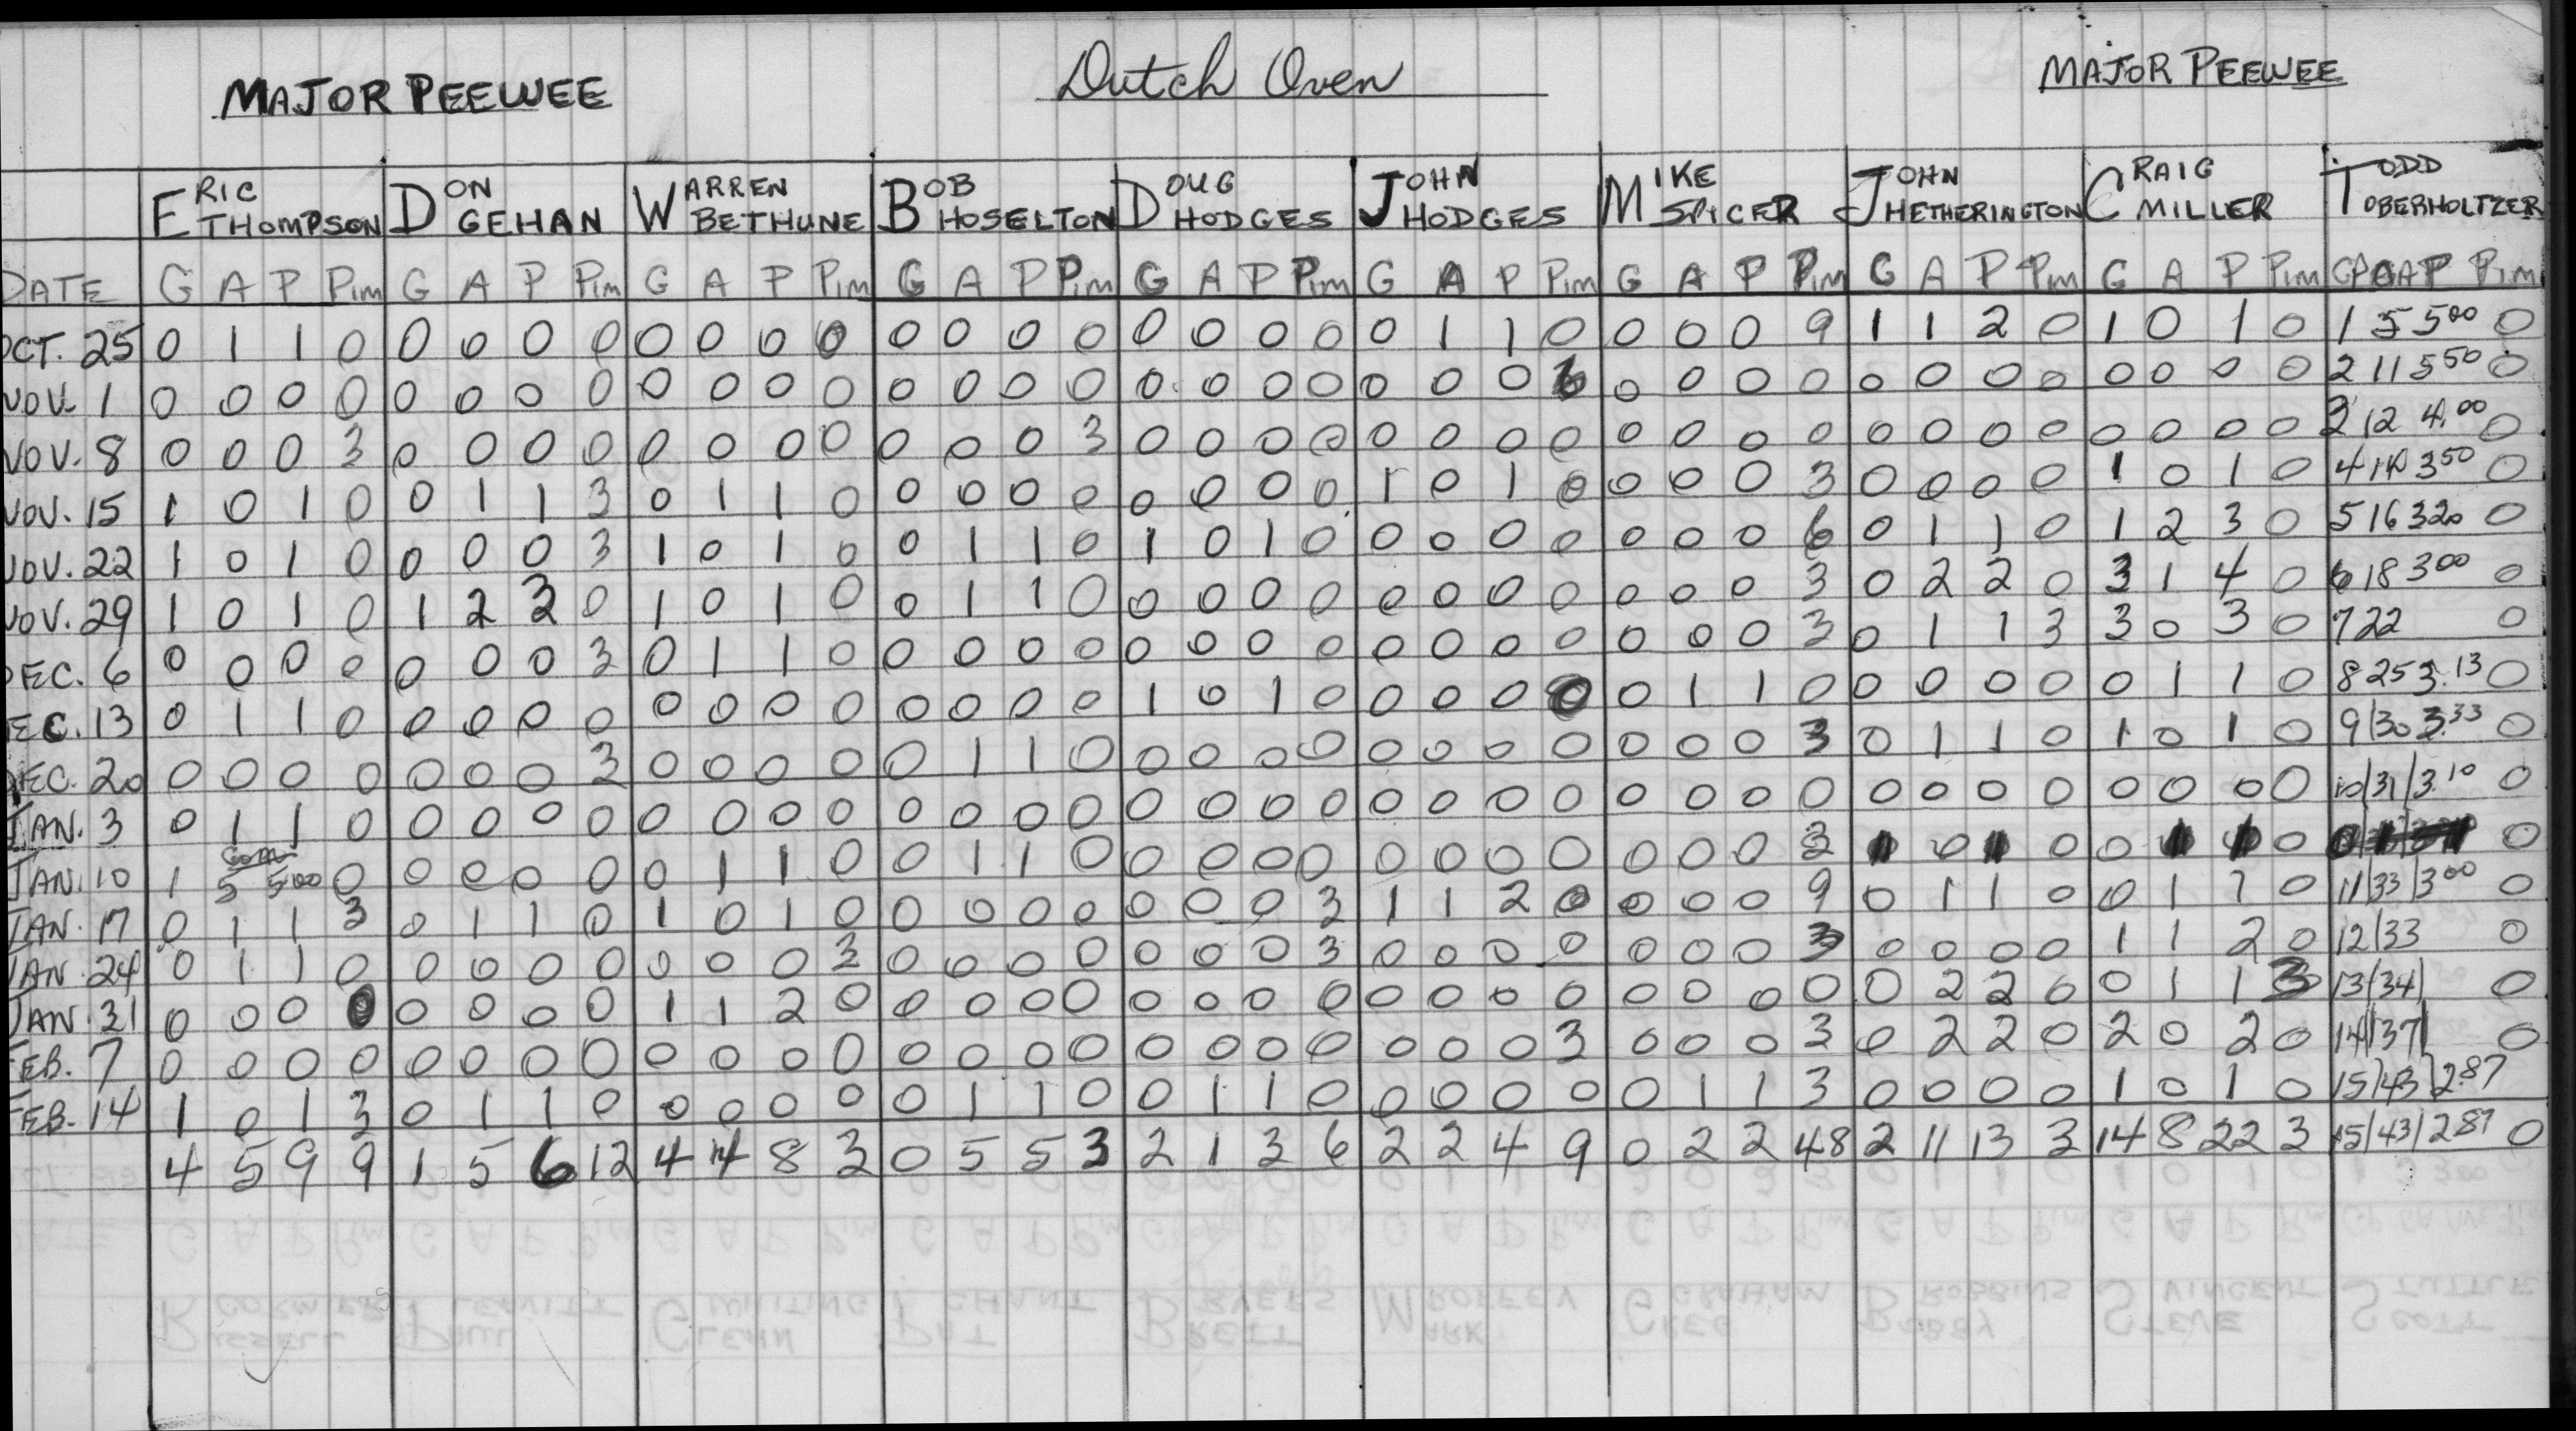 MAJOR PEEWEE Dutch Oven MAJOR PEEWEE
ERIC THOMPSON DON GEHAN WARREN BETHUNE BOB HOSELTON DOUG HODGES JOHN HODGES MIKE SPICER JOHN HETHERINGTON CRAIG MILLER TODD OBERHOLTZER
DATE G A P Pim G A P Pim G A P Pim G A P Pim G A P Pim G A P Pim G A P Pim G A P Pim G A P Pim GP GA AP Pim
OCT. 25 0 1 1 0 0 0 0 0 0 0 0 0 0 0 0 0 0 0 0 0 0 1 1 0 0 0 0 9 1 1 2 0 1 0 1 0 1 5 5.00 0
NOV. 1 0 0 0 0 0 0 0 0 0 0 0 0 0 0 0 0 0 0 0 0 0 0 0 6 0 0 0 0 0 0 0 0 0 0 0 0 2 11 5.50 0
NOV. 8 0 0 0 3 0 0 0 0 0 0 0 0 0 0 0 3 0 0 0 0 0 0 0 0 0 0 0 0 0 0 0 0 0 0 0 0 3 12 4.00 0
NOV. 15 1 0 1 0 0 1 1 3 0 1 1 0 0 0 0 0 0 0 0 0 1 0 1 0 0 0 0 3 0 0 0 0 1 0 1 0 4 14 3.50 0
NOV. 22 1 0 1 0 0 0 0 3 1 0 1 0 0 1 1 0 1 0 1 0 0 0 0 0 0 0 0 6 0 1 1 0 1 2 3 0 5 16 3.20 0
NOV. 29 1 0 1 0 1 2 3 0 1 0 1 0 0 1 1 0 0 0 0 0 0 0 0 0 0 0 0 3 0 2 2 0 3 1 4 0 6 18 3.00 0
DEC. 6 0 0 0 0 0 0 0 3 0 1 1 0 0 0 0 0 0 0 0 0 0 0 0 0 0 0 0 3 0 1 1 3 3 0 3 0 7 22 0
DEC. 13 0 1 1 0 0 0 0 0 0 0 0 0 0 0 0 0 1 0 1 0 0 0 0 0 0 1 1 0 0 0 0 0 0 1 1 0 8 25 3.13 0
DEC. 20 0 0 0 0 0 0 0 3 0 0 0 0 0 1 1 0 0 0 0 0 0 0 0 0 0 0 0 3 0 1 1 0 1 0 1 0 9/30 3.33 0
JAN. 3 0 1 1 0 0 0 0 0 0 0 0 0 0 0 0 0 0 0 0 0 0 0 0 0 0 0 0 0 0 0 0 0 0 0 0 0 10/31/3.10 0
JAN. 10 1 Gom 5 5.00 0 0 0 0 0 0 1 1 0 0 1 1 0 0 0 0 0 0 0 0 0 0 0 0 3 0 0 0 0 0
JAN. 17 0 1 1 3 0 1 1 0 1 0 1 0 0 0 0 0 0 0 0 3 1 1 2 0 0 0 0 9 0 1 1 0 0 1 1 0 11/33/3.00 0
JAN. 24 0 1 1 0 0 0 0 0 0 0 0 3 0 0 0 0 0 0 0 3 0 0 0 0 0 0 0 3 0 0 0 0 1 1 2 0 12/33 0
JAN. 31 0 0 0 0 0 0 0 0 1 1 2 0 0 0 0 0 0 0 0 0 0 0 0 0 0 0 0 0 0 2 2 0 0 1 1 3 13/34/ 0
FEB. 7 0 0 0 0 0 0 0 0 0 0 0 0 0 0 0 0 0 0 0 0 0 0 0 3 0 0 0 3 0 2 2 0 2 0 2 0 14/37/ 0
FEB. 14 1 0 1 3 0 1 1 0 0 0 0 0 0 1 1 0 0 1 1 0 0 0 0 0 0 1 1 3 0 0 0 0 1 0 1 0 15/43/2.87
4 5 9 9 1 5 6 12 4 4 8 3 0 5 5 3 2 1 3 6 2 2 4 9 0 2 2 48 2 11 13 3 14 8 22 3 15/43/2.87 0